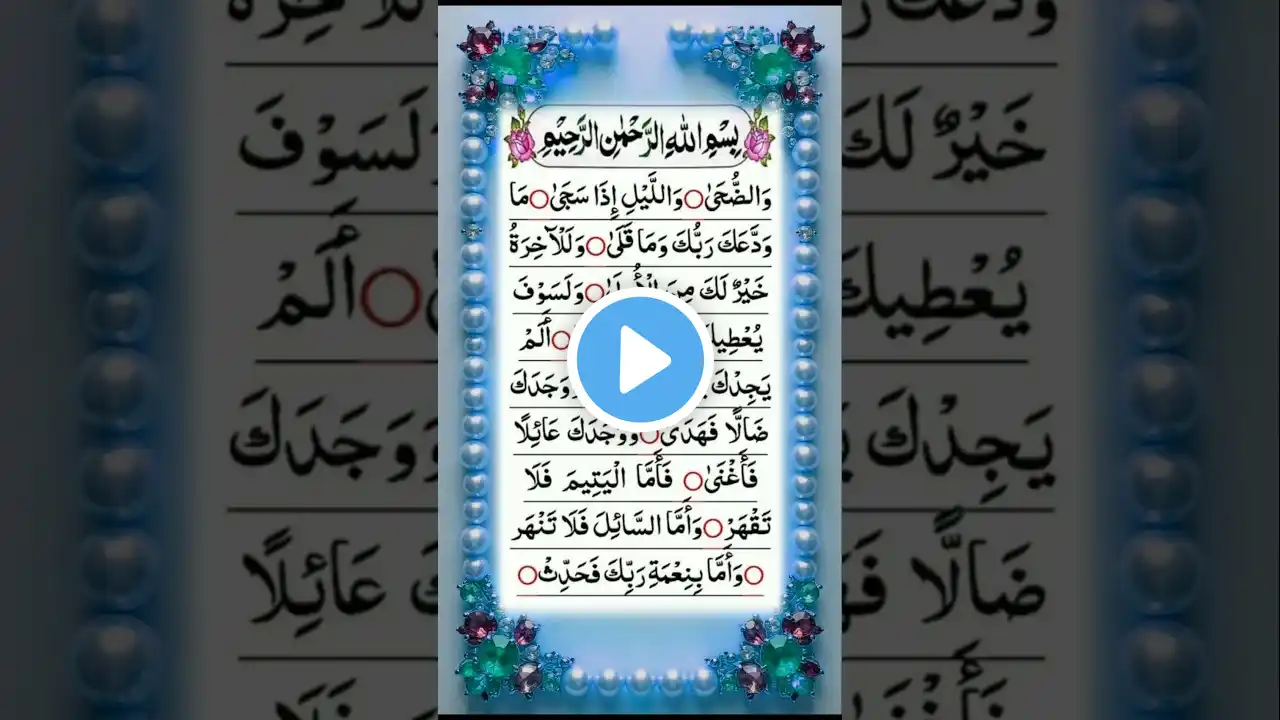 بِسْمِ اللهِ الرَّحْمٰنِ الرَّحِيْمِ
وَالضُّحَىٰ ○ وَاللَّيْلِ إِذَا سَجَىٰ ○ مَا
وَدَّعَكَ رَبُّكَ وَمَا قَلَىٰ ○ وَلَلْآخِرَةُ
خَيْرٌ لَكَ مِنَ ○ وَلَسَوْفَ
يُعْطِيكَ ○ أَلَمْ
يَجِدْكَ وَوَجَدَكَ
ضَالًّا فَهَدَىٰ ○ وَوَجَدَكَ عَائِلًا
فَأَغْنَىٰ ○ فَأَمَّا الْيَتِيمَ فَلَا
تَقْهَرْ ○ وَأَمَّا السَّائِلَ فَلَا تَنْهَر
○ وَأَمَّا بِنِعْمَةِ رَبِّكَ فَحَدِّثْ ○